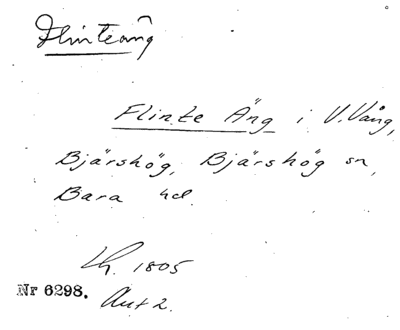 Flinteäng
Flinte Äng i V. Vång,
Bjärshög, Bjärshög sn,
Bara hd.
Lh. 1805
Nr 6298.
Akt 2.